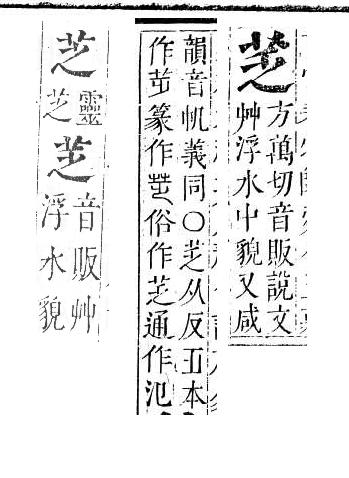 䒦
方萬切音販說文
艸浮水中貌又咸
韻音帆義同○䒦从反本
作篆作俗作芝通作氾
芝
靈
芝
䒦
音販艸
浮水貌